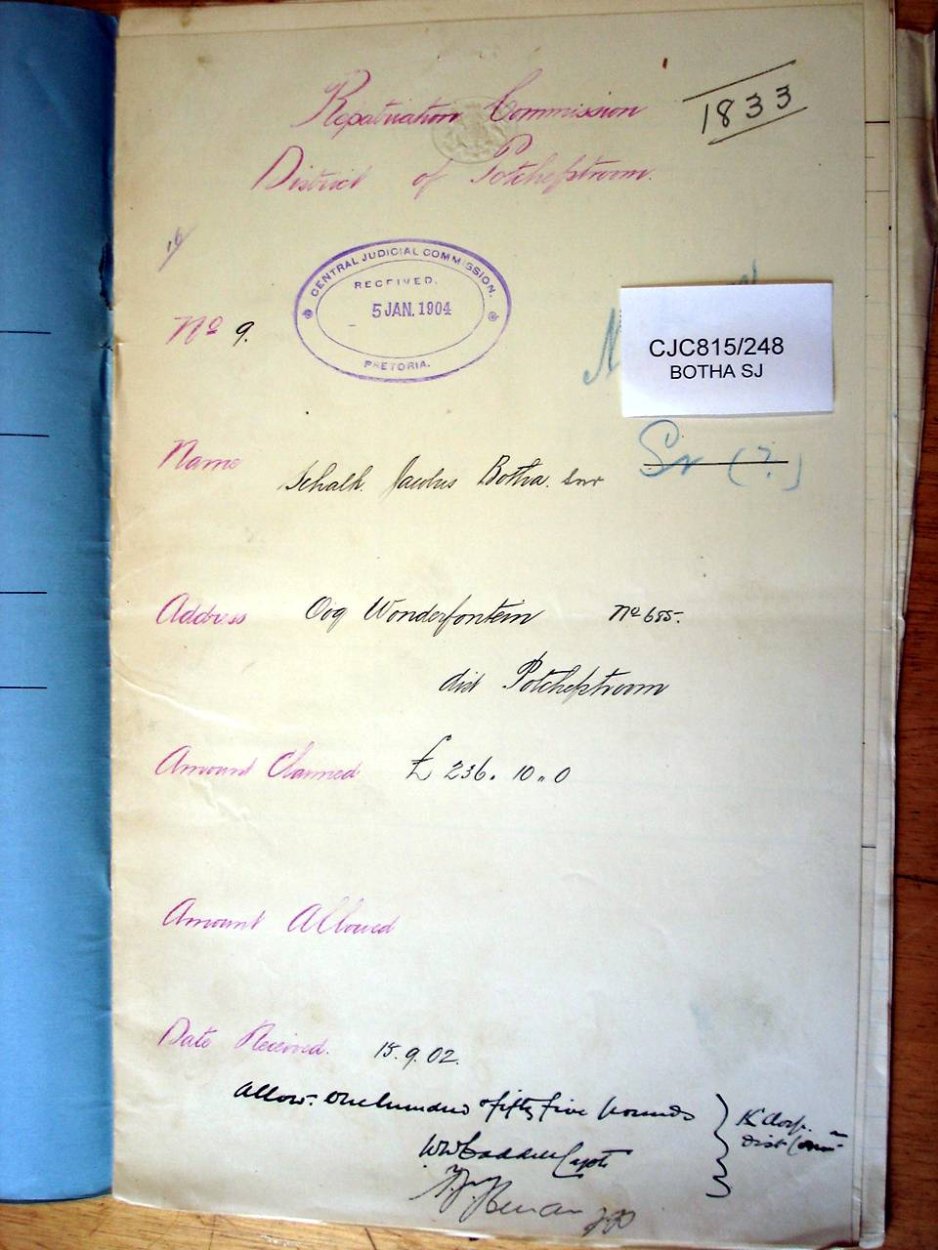 1833
Repatriation Commission
District of Potchefstroom.
CENTRAL JUDICIAL COMMISSION.
RECEIVED.
5 JAN. 1904
PRETORIA.
No 9.
CJC815/248
BOTHA SJ
Name Schalk Jacobus Botha. Snr Sr (?)
Address Oog Wonderfontein No 655.
dist Potchefstroom
Amount Claimed £ 236. 10. 0
Amount Allowed
Date Received. 15.9.02.
Allow. One hundred & fifty five pounds
K'dorp. Dist Com